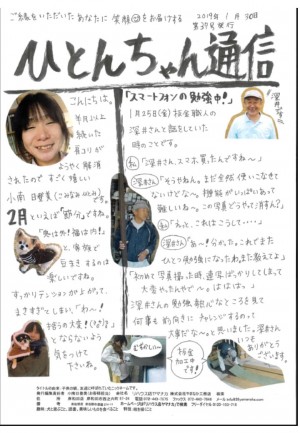 ご縁をいただいたあなたに 笑顔をお届けする
2019年1月30日
第39号発行
ひとんちゃん通信
こんにちは。
半月以上
続いた
肩コリが
ようやく解消
されたので すごく嬉しい
小南 日登美(こみなみひとみ)です。
2月といえば「節分」ですね。
「鬼は外!福は内!」
と、家族で
豆まきするのは
楽しいですね。
すっかりテンションが上がって、
まきすぎてしまい、「わ〜!
拾うの大変!(汗)」
とならないよう
気をつけて
下さいね。
「スマートフォンの勉強中!」
1月25日(金)板金職人の
深井さんと話をしていた
時のことです。
深井さん
私「深井さん、スマホ、買ったんですね〜」
深井さん「そうやねん。まだ全然使いこなせて
ないけどな〜。機能がいっぱいあって
難しいね〜。この写真どうやって消すん?」
私「えっと、これはこうして・・・」
深井さん「あ〜!分かった。これでまた
ひとつ勉強になったわ。また教えてよ」
「初めて写真撮った時、連写ばっかりしてしまって
大変やったんやで〜。ははは。」
深井さんの勉強熱心なところを見て
何事も前向きに チャレンジするのって
大事だな〜と思いました。深井さん
いつも
ありがとう
ございます。
むずかしい…
板金
加工中
です!